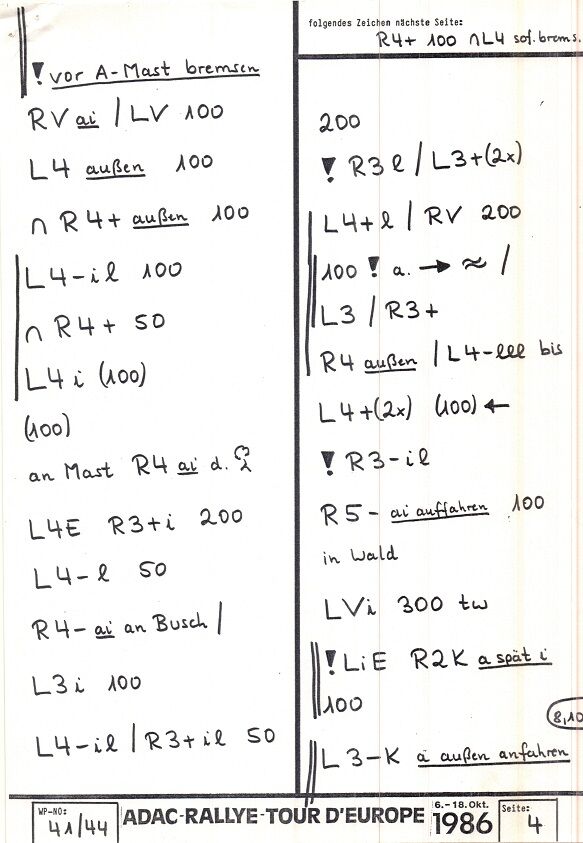 ! vor A-Mast bremsen
RV ai / LV 100
L4 außen 100
∩ R4+ außen 100
L4-il 100
∩ R4+ 50
L4 i (100)
(100)
an Mast R4 ai d.
L4E R3+i 200
L4-l 50
R4-ai an Busch /
L3 i 100
L4-il / R3+il 50
folgendes Zeichen nächste Seite:
R4+ 100 ∩L4 sof. brems.
200
! R3 l / L3+(2x)
L4+l / RV 200
100 ! a. → ≈ /
L3 / R3+
R4 außen / L4-lll bis
L4+(2x) (100) ←
! R3-il
R5- ai auffahren 100
in Wald
LVi 300 tw
! LiE R2K a spät i
100
8,10
L3-K a außen anfahren
WP-NO: 41/44
ADAC-RALLYE-TOUR D'EUROPE
6.-18.Okt. 1986
Seite: 4